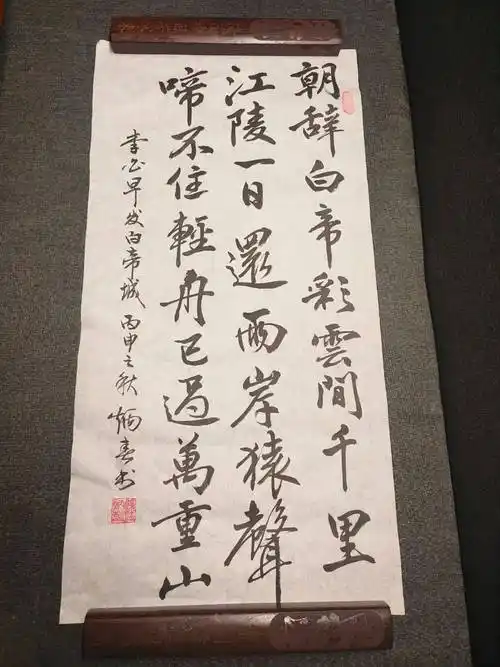 朝辞白帝彩雲間千里
江陵一日還兩岸猿聲
啼不住輕舟已過萬重山
李白早发白帝城 丙申之秋 炳春书